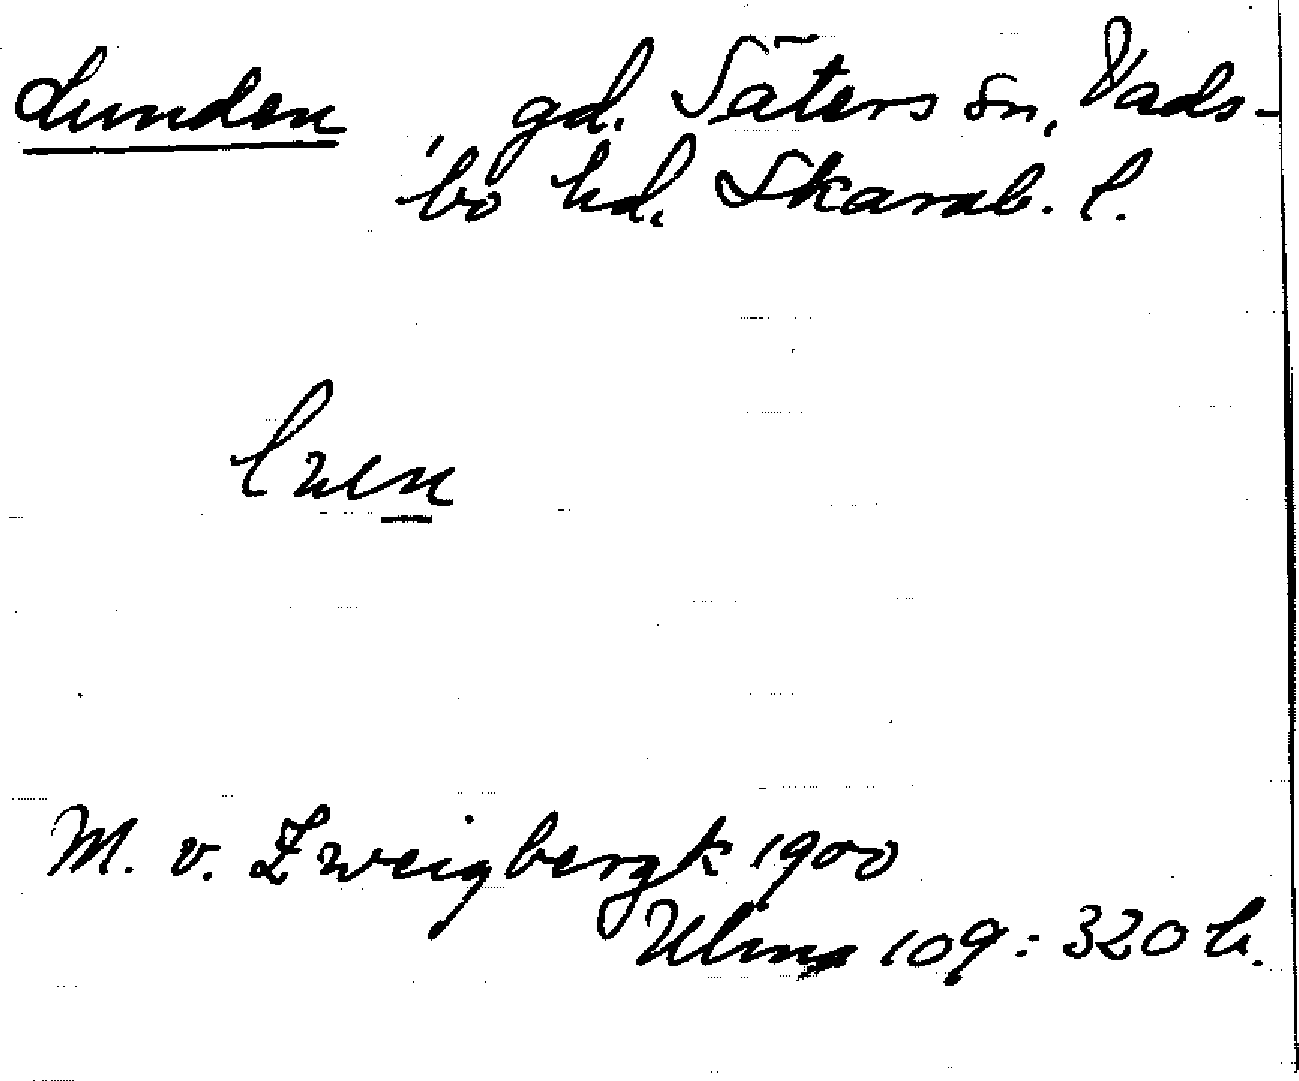 Lunden gd. Säters sn, Vads-
bo hd. Skarab. l.
M. v. Zweigbergk 1900
Ulma 109: 320 b.